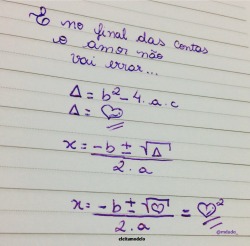 E no final das contas
o amor não
vai errar...
Δ = b² - 4 . a . c
Δ = ♡
x = -b ± √Δ / 2 . a
x = -b ± √♡ / 2 . a = ♡²
eleitamodelo